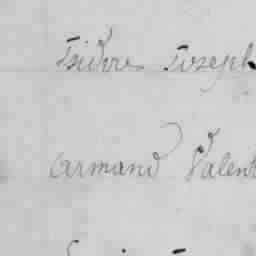 Isidore Joseph
Armand Valent